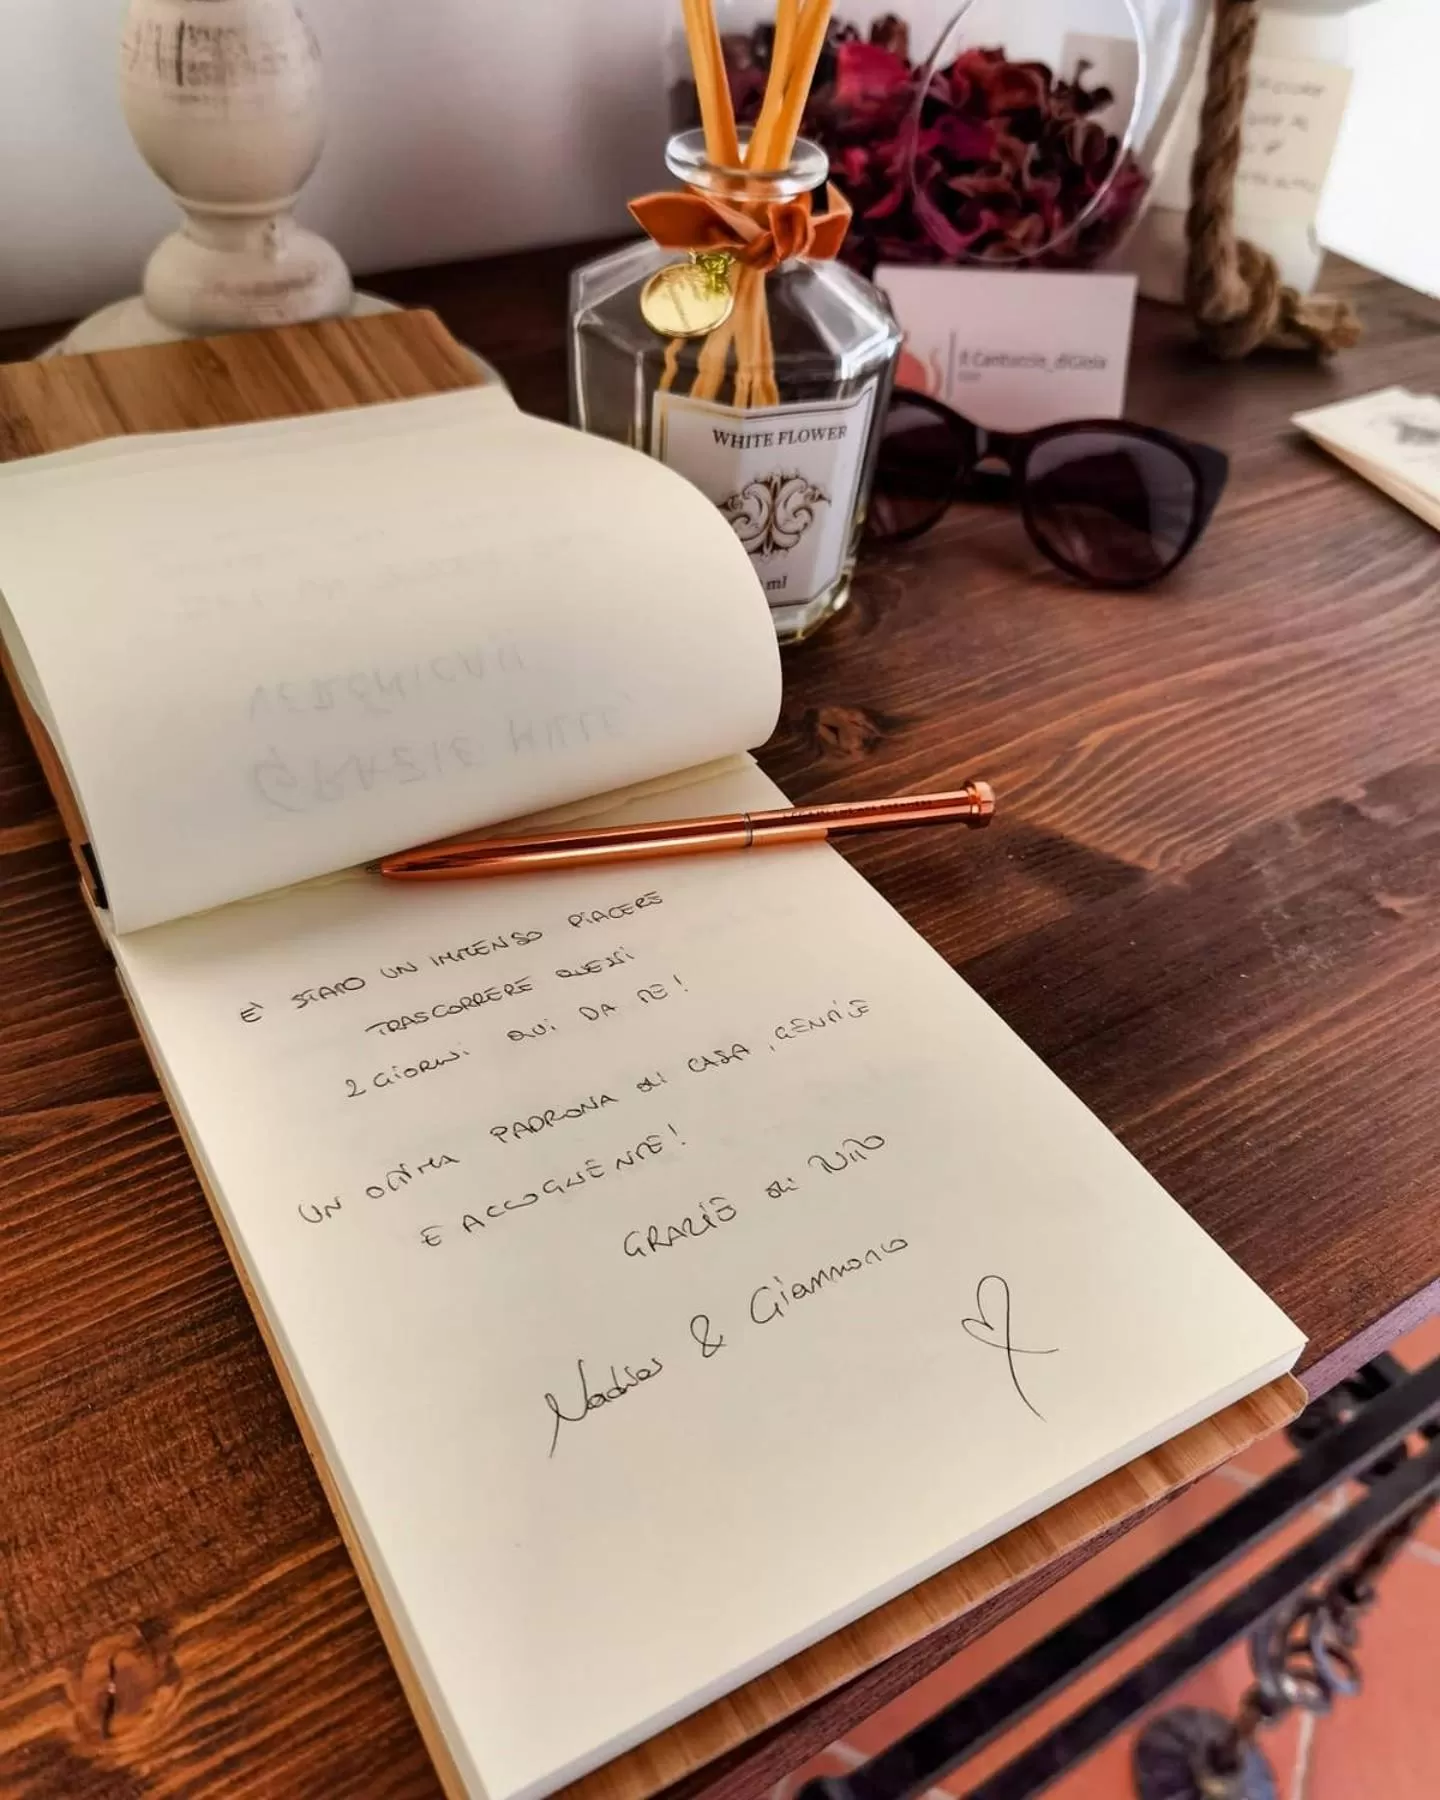 WHITE FLOWER
ml
Il Cantuccio_diGioia
VERONICA
GRAZIE MILLE
È STATO UN IMMENSO PIACERE
TRASCORRERE QUESTI
2 GIORNI QUI DA TE!
UN OTTIMA PADRONA di CASA, GENTILE
E ACCOGLIENTE!
GRAZIE di TUTTO
Nadia & Gianmarco